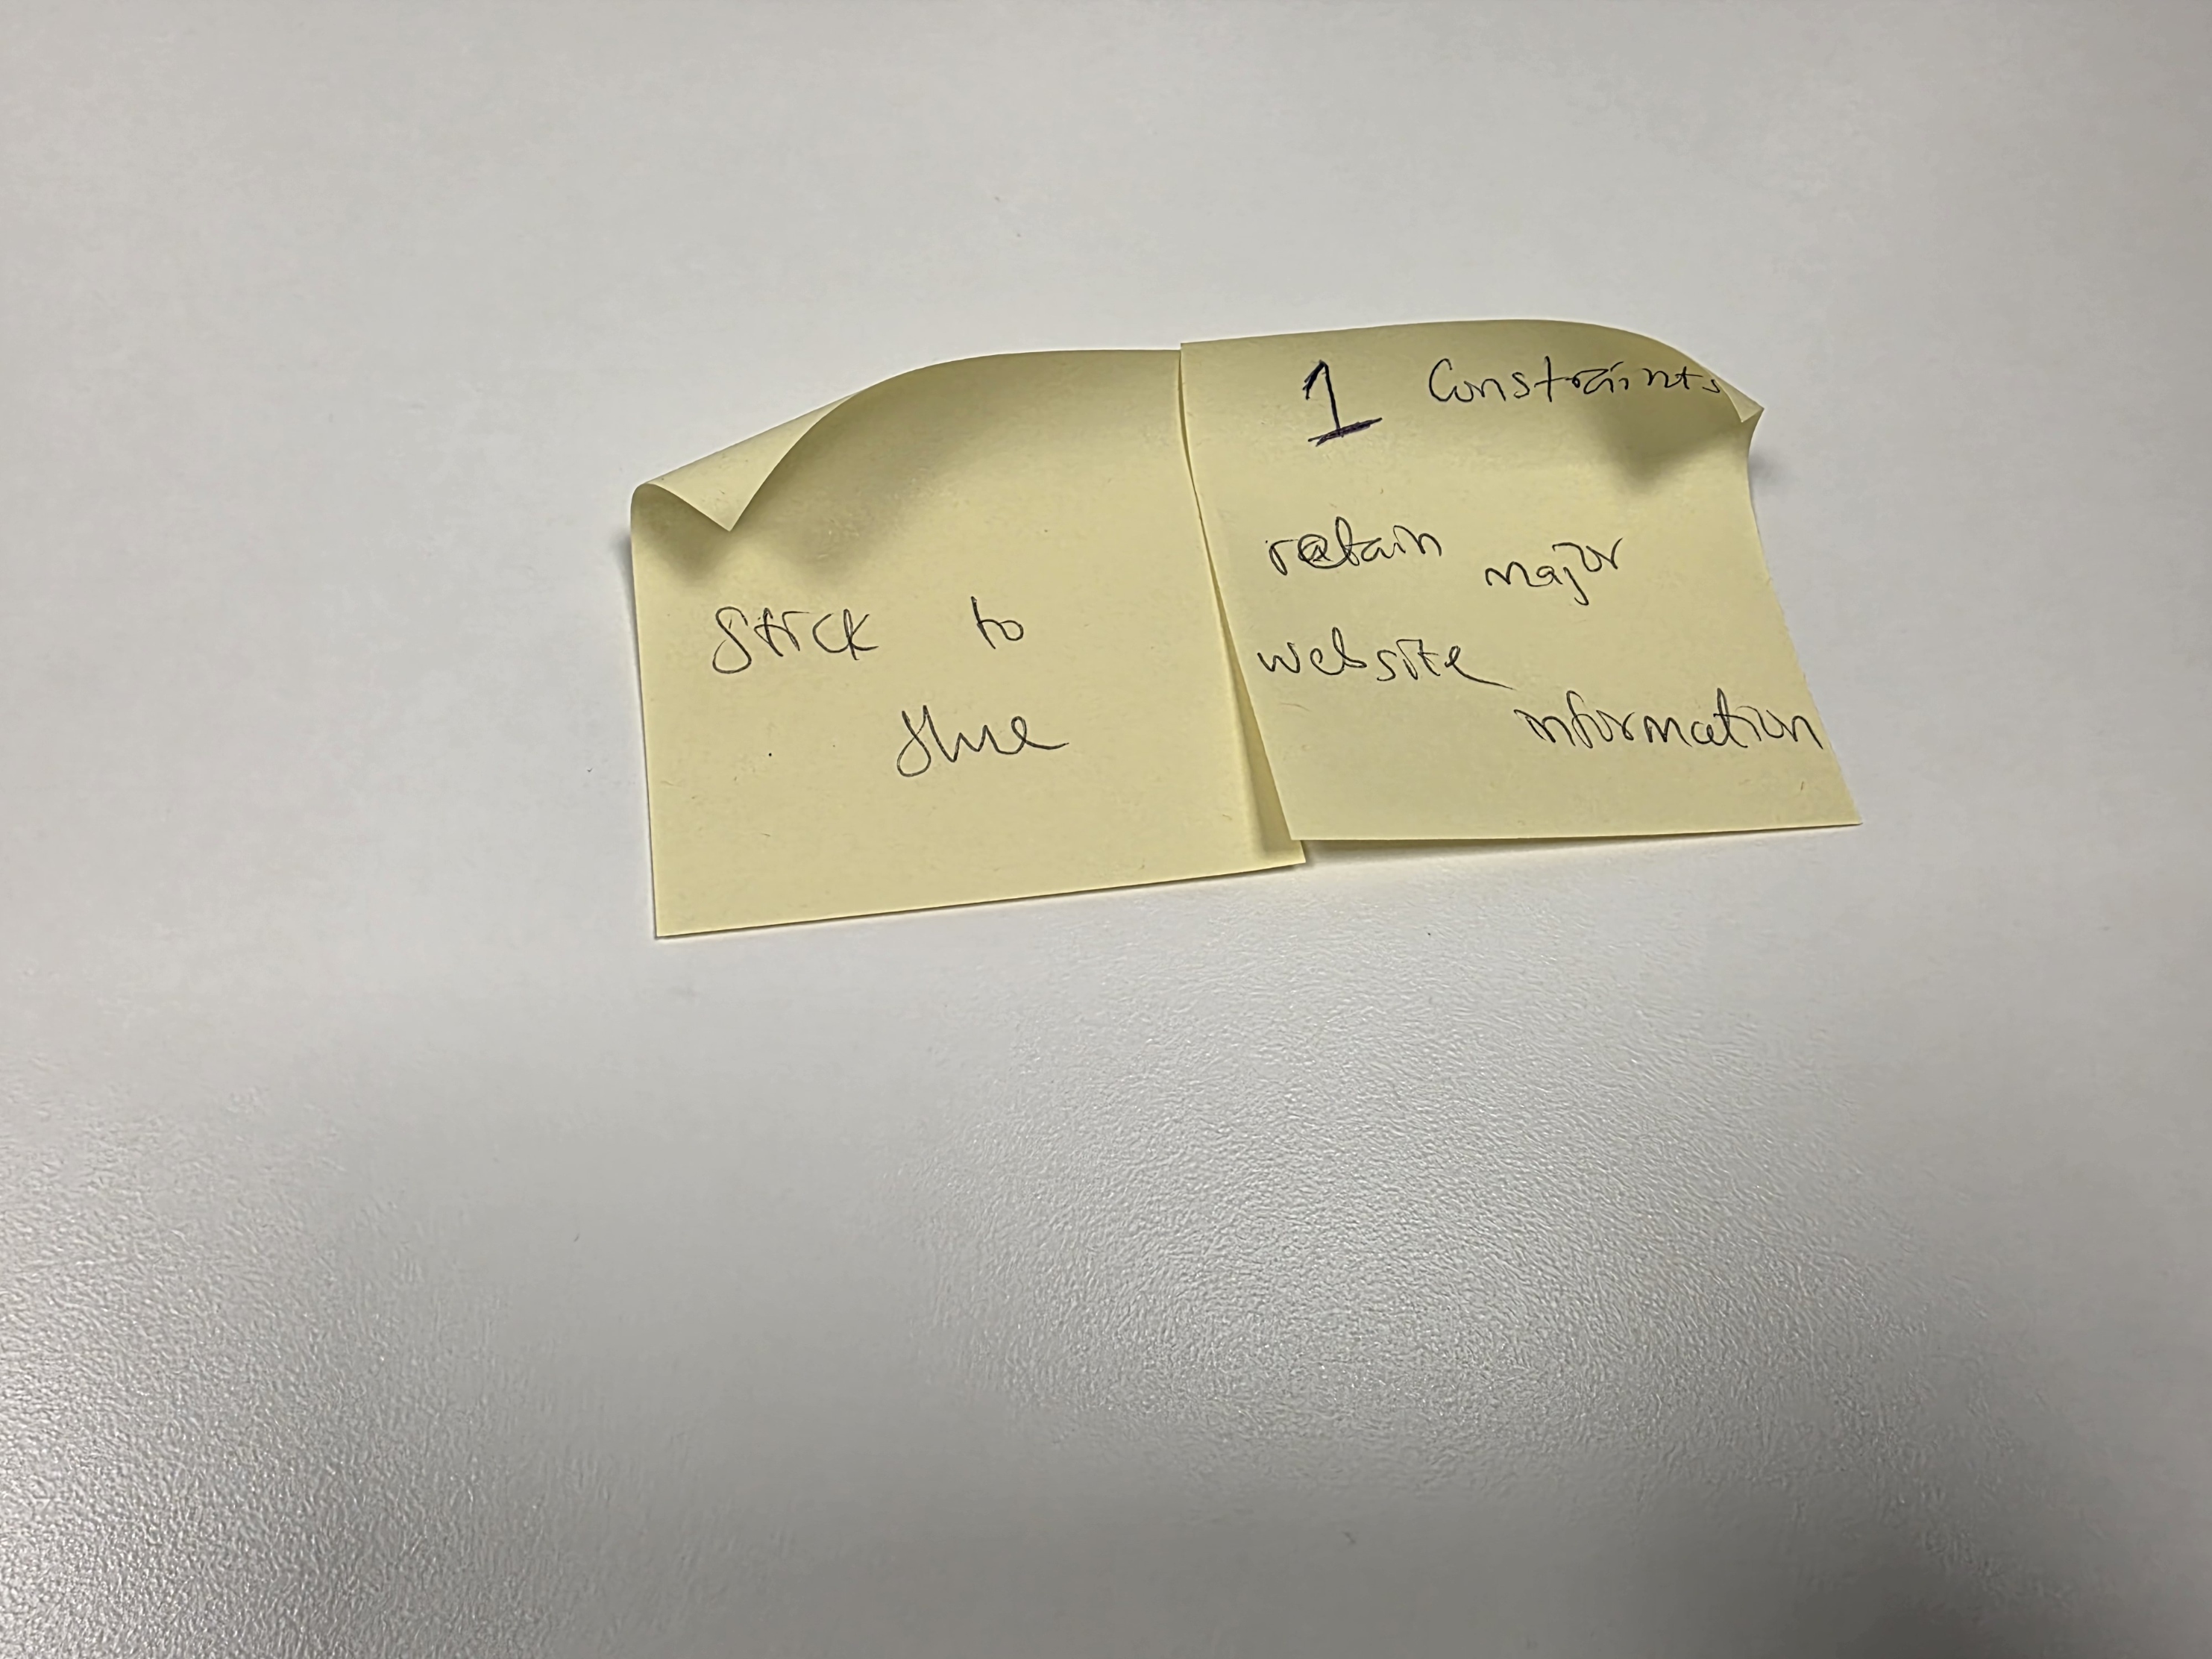 Stick to
1 Constraints
retain major
website
information